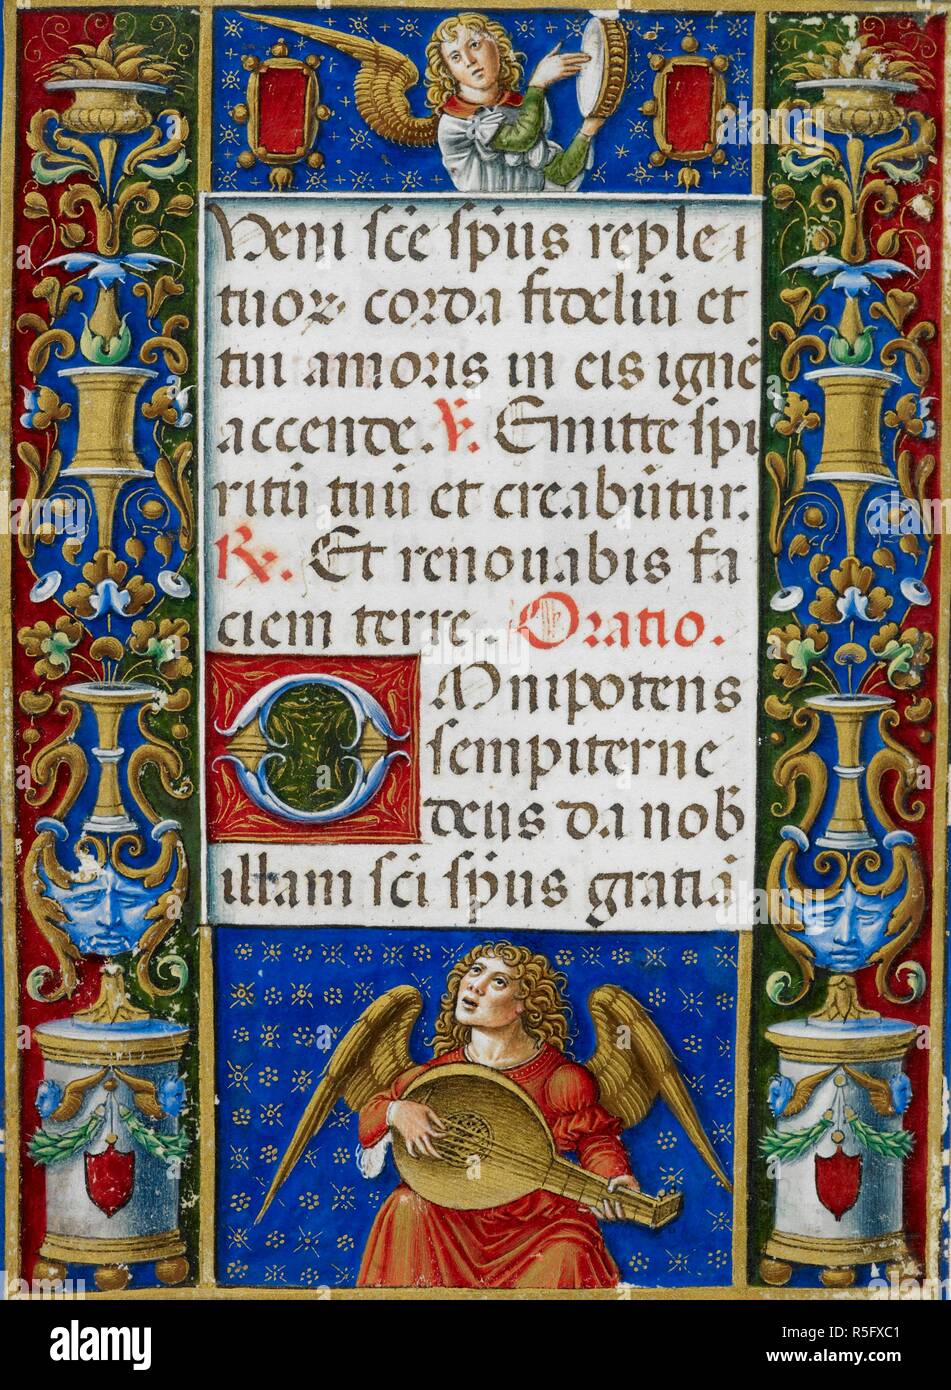 Veni sc̄e sp̄us reple t
tuoꝝ corda fideliū et
tui amoris in eis ignē
accende. V. Emitte spi
ritū tuū et creabūtur.
R. Et renouabis fa
ciem terre. Oratio.
OMnipotens
sempiterne
deus da nob̄
illam sc̄i sp̄us gratiā
alamy
Image ID: R5FXC1
www.alamy.com